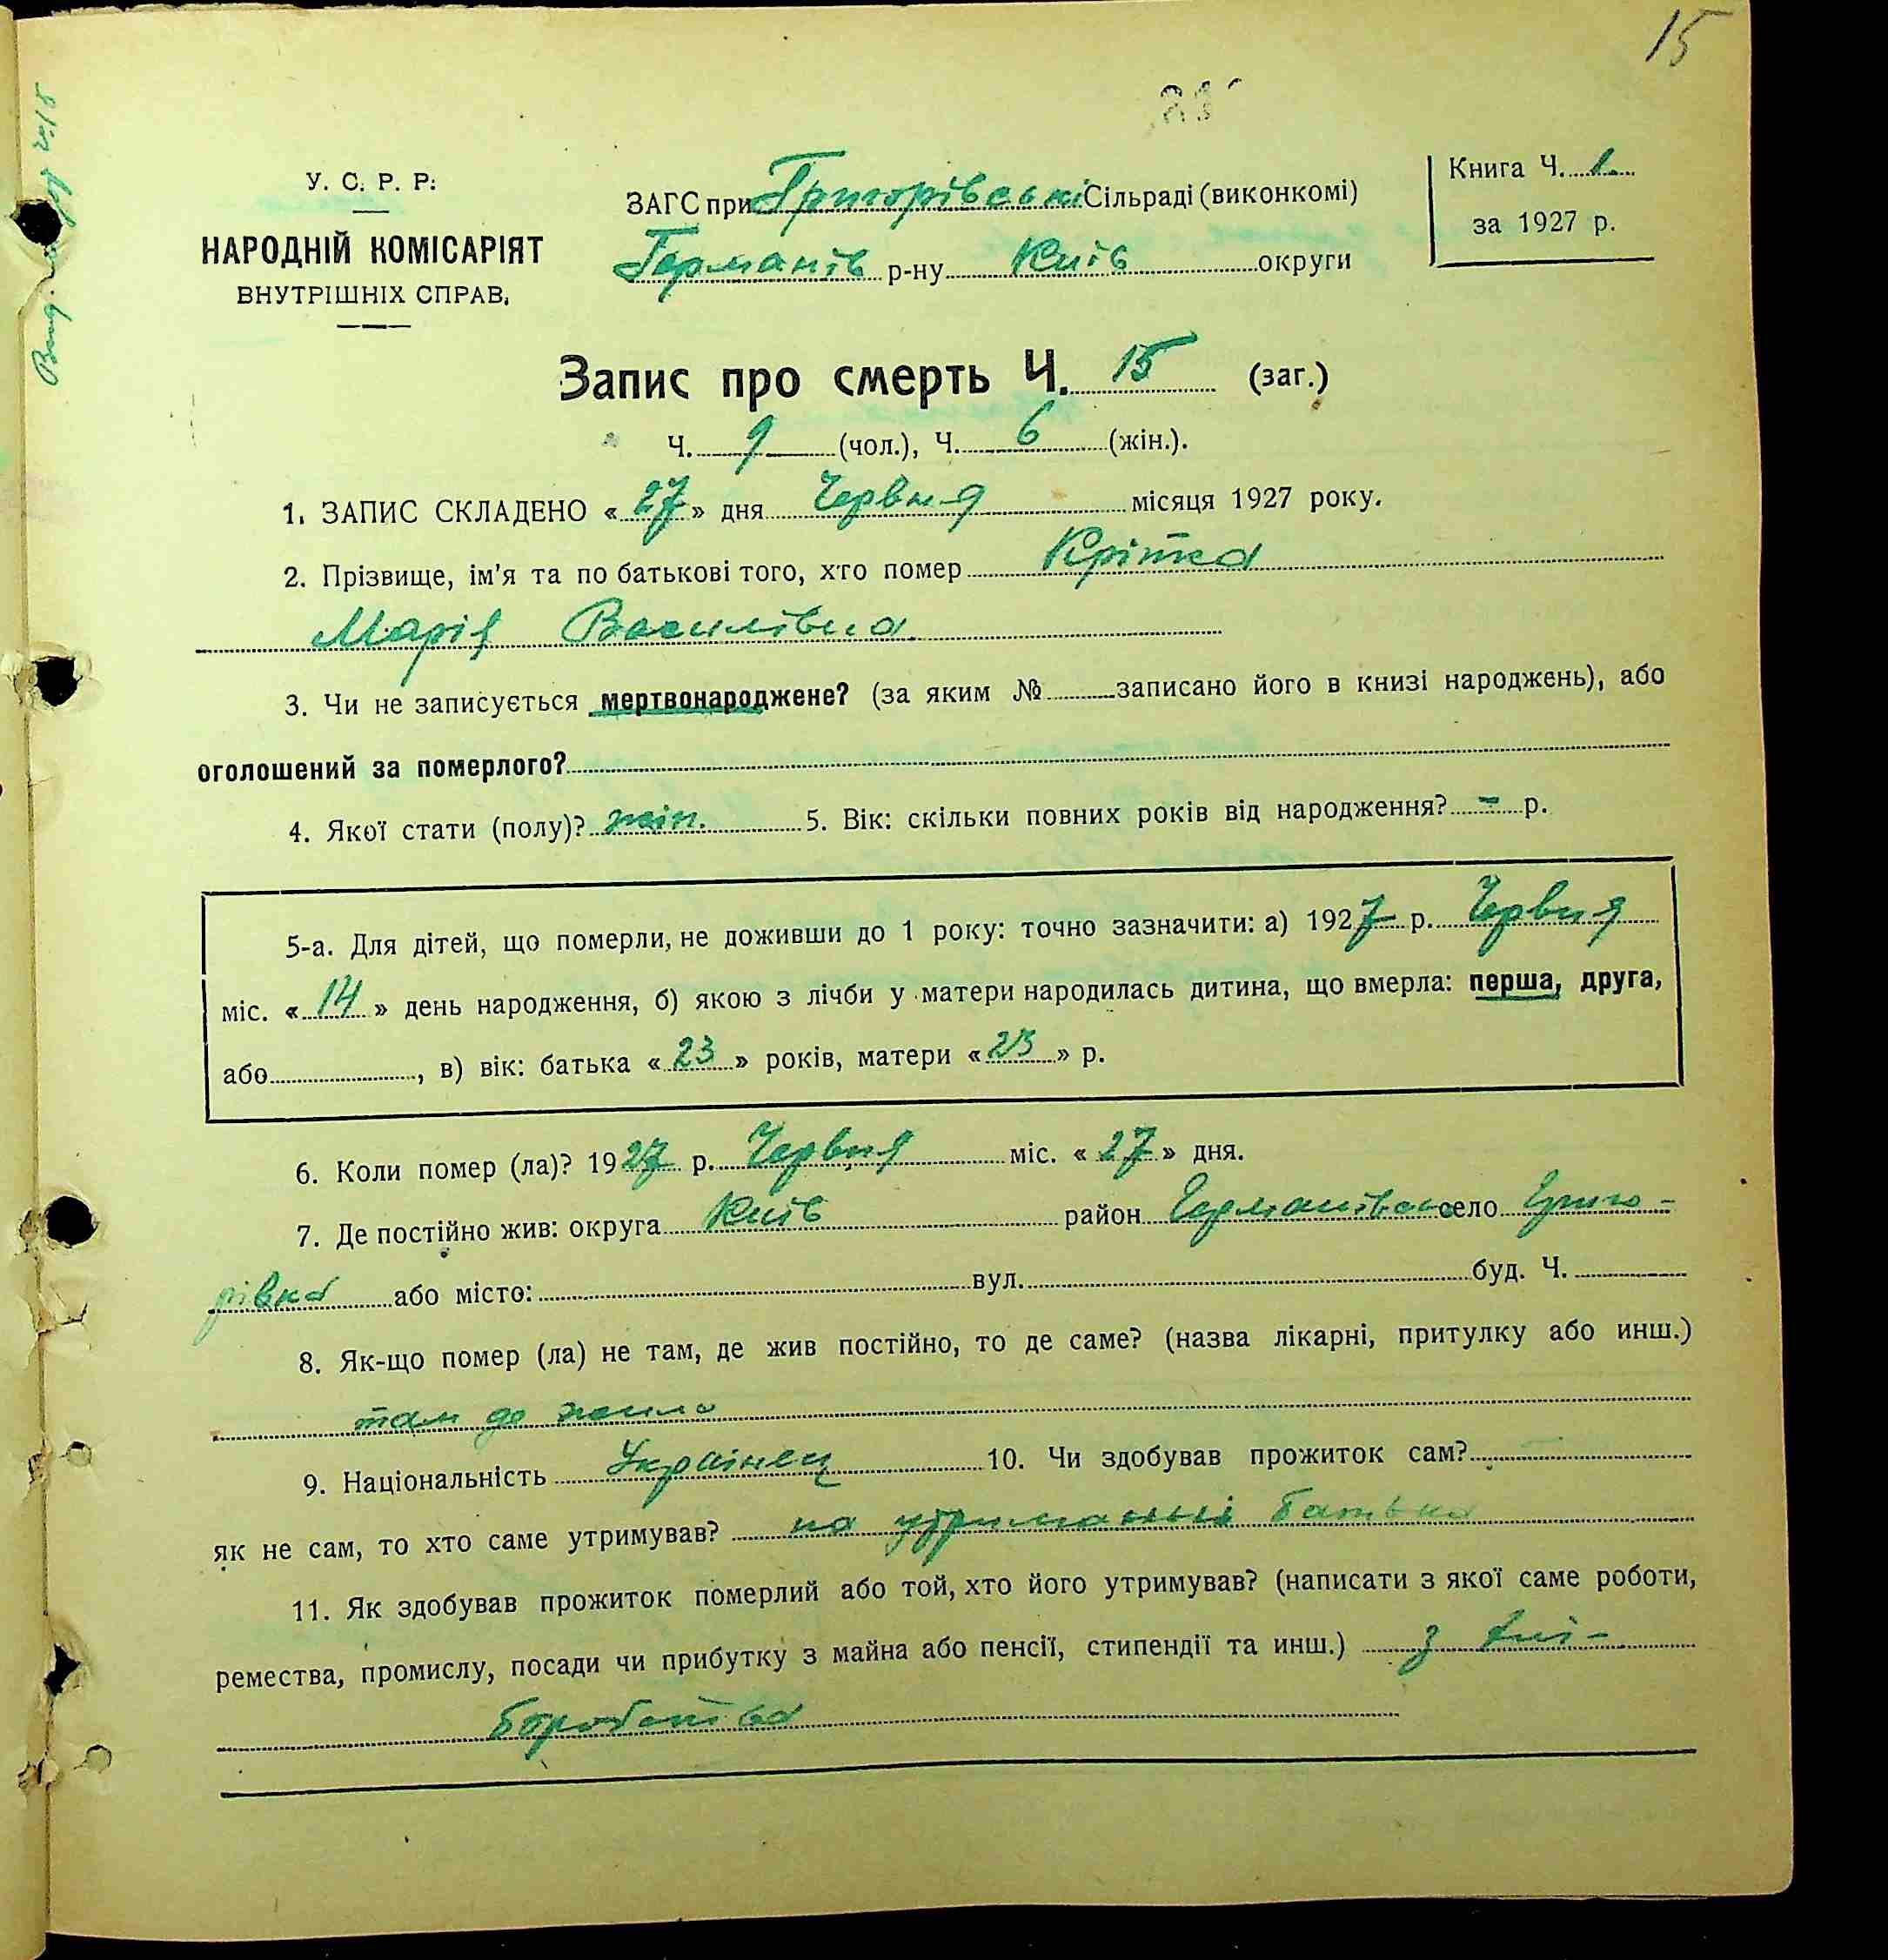 15
У. С. Р. Р.
НАРОДНІЙ КОМІСАРІЯТ
ВНУТРІШНІХ СПРАВ.
ЗАГС при Григорівські Сільраді (виконкомі)
Германів р-ну Київ округи
Книга Ч. 1.
за 1927 р.
Запис про смерть Ч. 15 (заг.)
Ч. 9 (чол.), Ч. 6 (жін.).
1. ЗАПИС СКЛАДЕНО «27» дня Червня місяця 1927 року.
2. Прізвище, ім'я та по батькові того, хто помер Крітка
Марія Василівна.
3. Чи не записується мертвонароджене? (за яким № записано його в книзі народжень), або
оголошений за померлого?
4. Якої стати (полу)? жін. 5. Вік: скільки повних років від народження? – р.
5-а. Для дітей, що померли, не доживши до 1 року: точно зазначити: а) 1927 р. Червня
міс. «14» день народження, б) якою з лічби у матери народилась дитина, що вмерла: перша, друга,
або , в) вік: батька «23» років, матери «23» р.
6. Коли помер (ла)? 1927 р. Червня міс. «27» дня.
7. Де постійно жив: округа Київ район Германівськ село Григо-
рівка або місто: вул. буд. Ч.
8. Як-що помер (ла) не там, де жив постійно, то де саме? (назва лікарні, притулку або инш.)
там де жила
9. Національність Украінец 10. Чи здобував прожиток сам?
як не сам, то хто саме утримував? на утриманні батька
11. Як здобував прожиток померлий або той, хто його утримував? (написати з якої саме роботи,
ремества, промислу, посади чи прибутку з майна або пенсії, стипендії та инш.) з хлі-
боробства